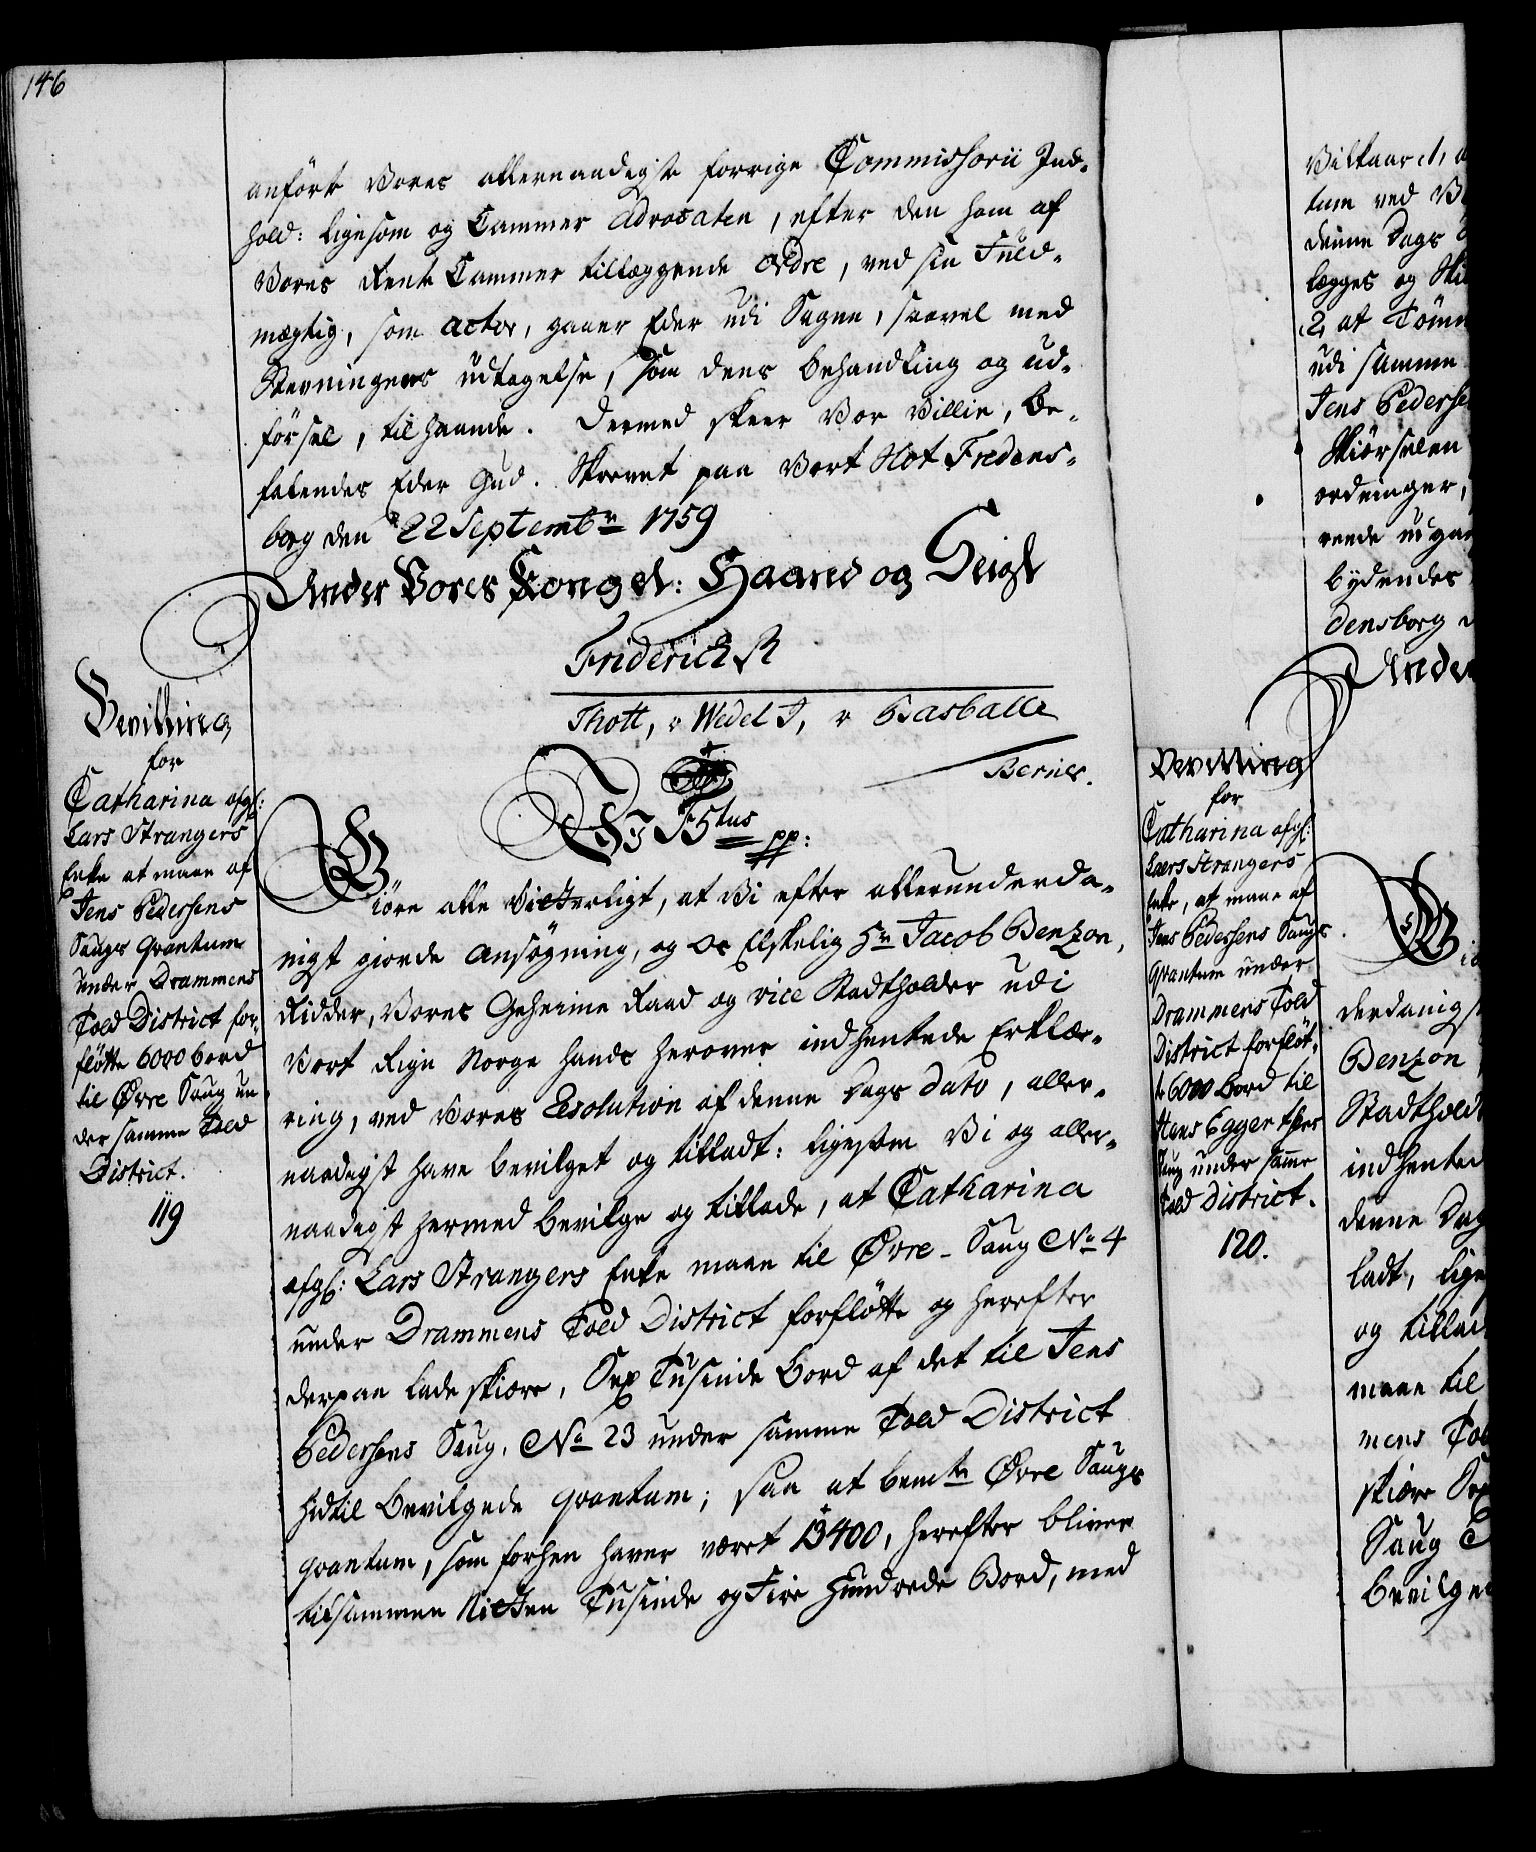 146
anförte Vores allernaadigste forrige Commissorii Ind-
hold: ligesom og Cammer Advocaten, efter den ham af
Vores Rente Cammer tillæggende Ordre, ved sin Fuld-
mægtig, som Actor, gaaer Eder udi Sagen, saavel med
Stevningens udtagelse, som dens behandling og ud-
försel, til haande. Dermed skeer Vor Villie, Be-
falendes Eder Gud. Skrevet paa Vort Slot Fredens-
borg den 22 Septembr 1759
Under Vores Kongel: Haand og Seigl
Friderich R
Thott, v Wedel J, v Basballe
Bernes.
Bevilling
for
Catharina afgl:
Lars Strangers
Enke at maae af
Jens Pedersens
Saugs qvantum
under Drammens
Told District for-
flötte 6000 bord
til Øvre Saug un
der samme Told
District.
119
Wj F5tus pp:
Giöre alle Vitterligt, at Vi efter allerunderda-
nigst giorde Ansögning, og Os Elskelig Hr Jacob Benzon,
Ridder, Vores Geheime Raad og vice Stadtholder udi
Vort Rige Norge hands herover indhentede Erklæ-
ring, ved Vores Resolution af denne Dags Dato, aller-
naadigst have bevilget og tilladt: ligesom Vi og aller-
naadigst hermed bevilge og tillade, at Catharina
afgl: Lars Strangers Enke maae til Øvre-Saug No 4
under Drammens Told District forflötte og herefter
derpaa lade skiære, Sex Tusinde Bord af det til Jens
Pedersens Saug, No 23 under samme Told District
hidtil Bevilgede qvantum; saa at bemte Øvre Saugs
qvantum, som forhen haver været 13400, herefter bliver
tilsammen Nitten Tusinde og Fire Hundrede Bord, med
Bevilling
for
Catharina afgl:
Laers Strangers
Enke, at maae af
Jens Pedersens Saugs
qvantum under
Drammens Told
District forflöt-
te 6000 Bord til
Hans Eggerthes
Saug under samme
Told District.
120.
Vilkaar
tum ved
denne Dags
lægges og
2, at Tömm
udi samme
Jens Pederse
Skiörselen
ordninger,
bydendes
densborg
Under
derdanigs
Benzon
Stadthold
indhentede
denne Dag
ladt, lige
og tillad
maae til
mens Tol
skiære Sex
Saug
bevilge